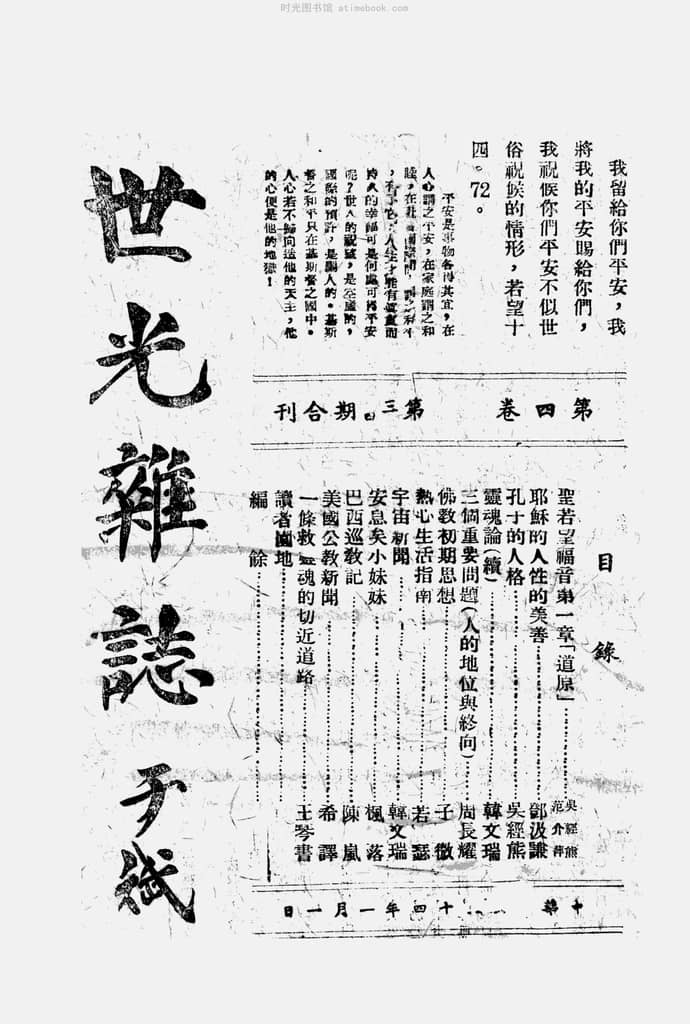 时光图书馆 atimebook.com
我留給你們平安，我
將我的平安賜給你們，
我祝候你們平安不似世
俗祝候的情形，若望十
四。72。
平安是事物各得其宜，在
人心謂之平安，在家庭謂之和
睦，在社會國際間，謂之和平
的幸福可是何處可得平安
呢？世人的祝望，是空虛的，
國際的預許，是騙人的。基斯
督之和平只在基斯督之國中。
人心若不歸向造他的天主，他
的心便是他的地獄！
第四卷 第三四期合刊
目錄
聖若望福音第一章「道原」 吳經熊 范介萍
耶穌的人性的美善 鄧汲謙
孔子的人格 吳經熊
靈魂論(續) 韓文瑞
三個重要問題(人的地位與終向) 周長耀
佛敎初期思想 子徵
熱心生活指南 若瑟
宇宙新聞 韓文瑞
安息矣小妹妹 楓落
巴西巡敎記 陳嵐
美國公敎新聞 希譯
一條救靈魂的切近道路 王琴書
讀者園地
編餘
十四年一月一日
世光雜誌
于斌